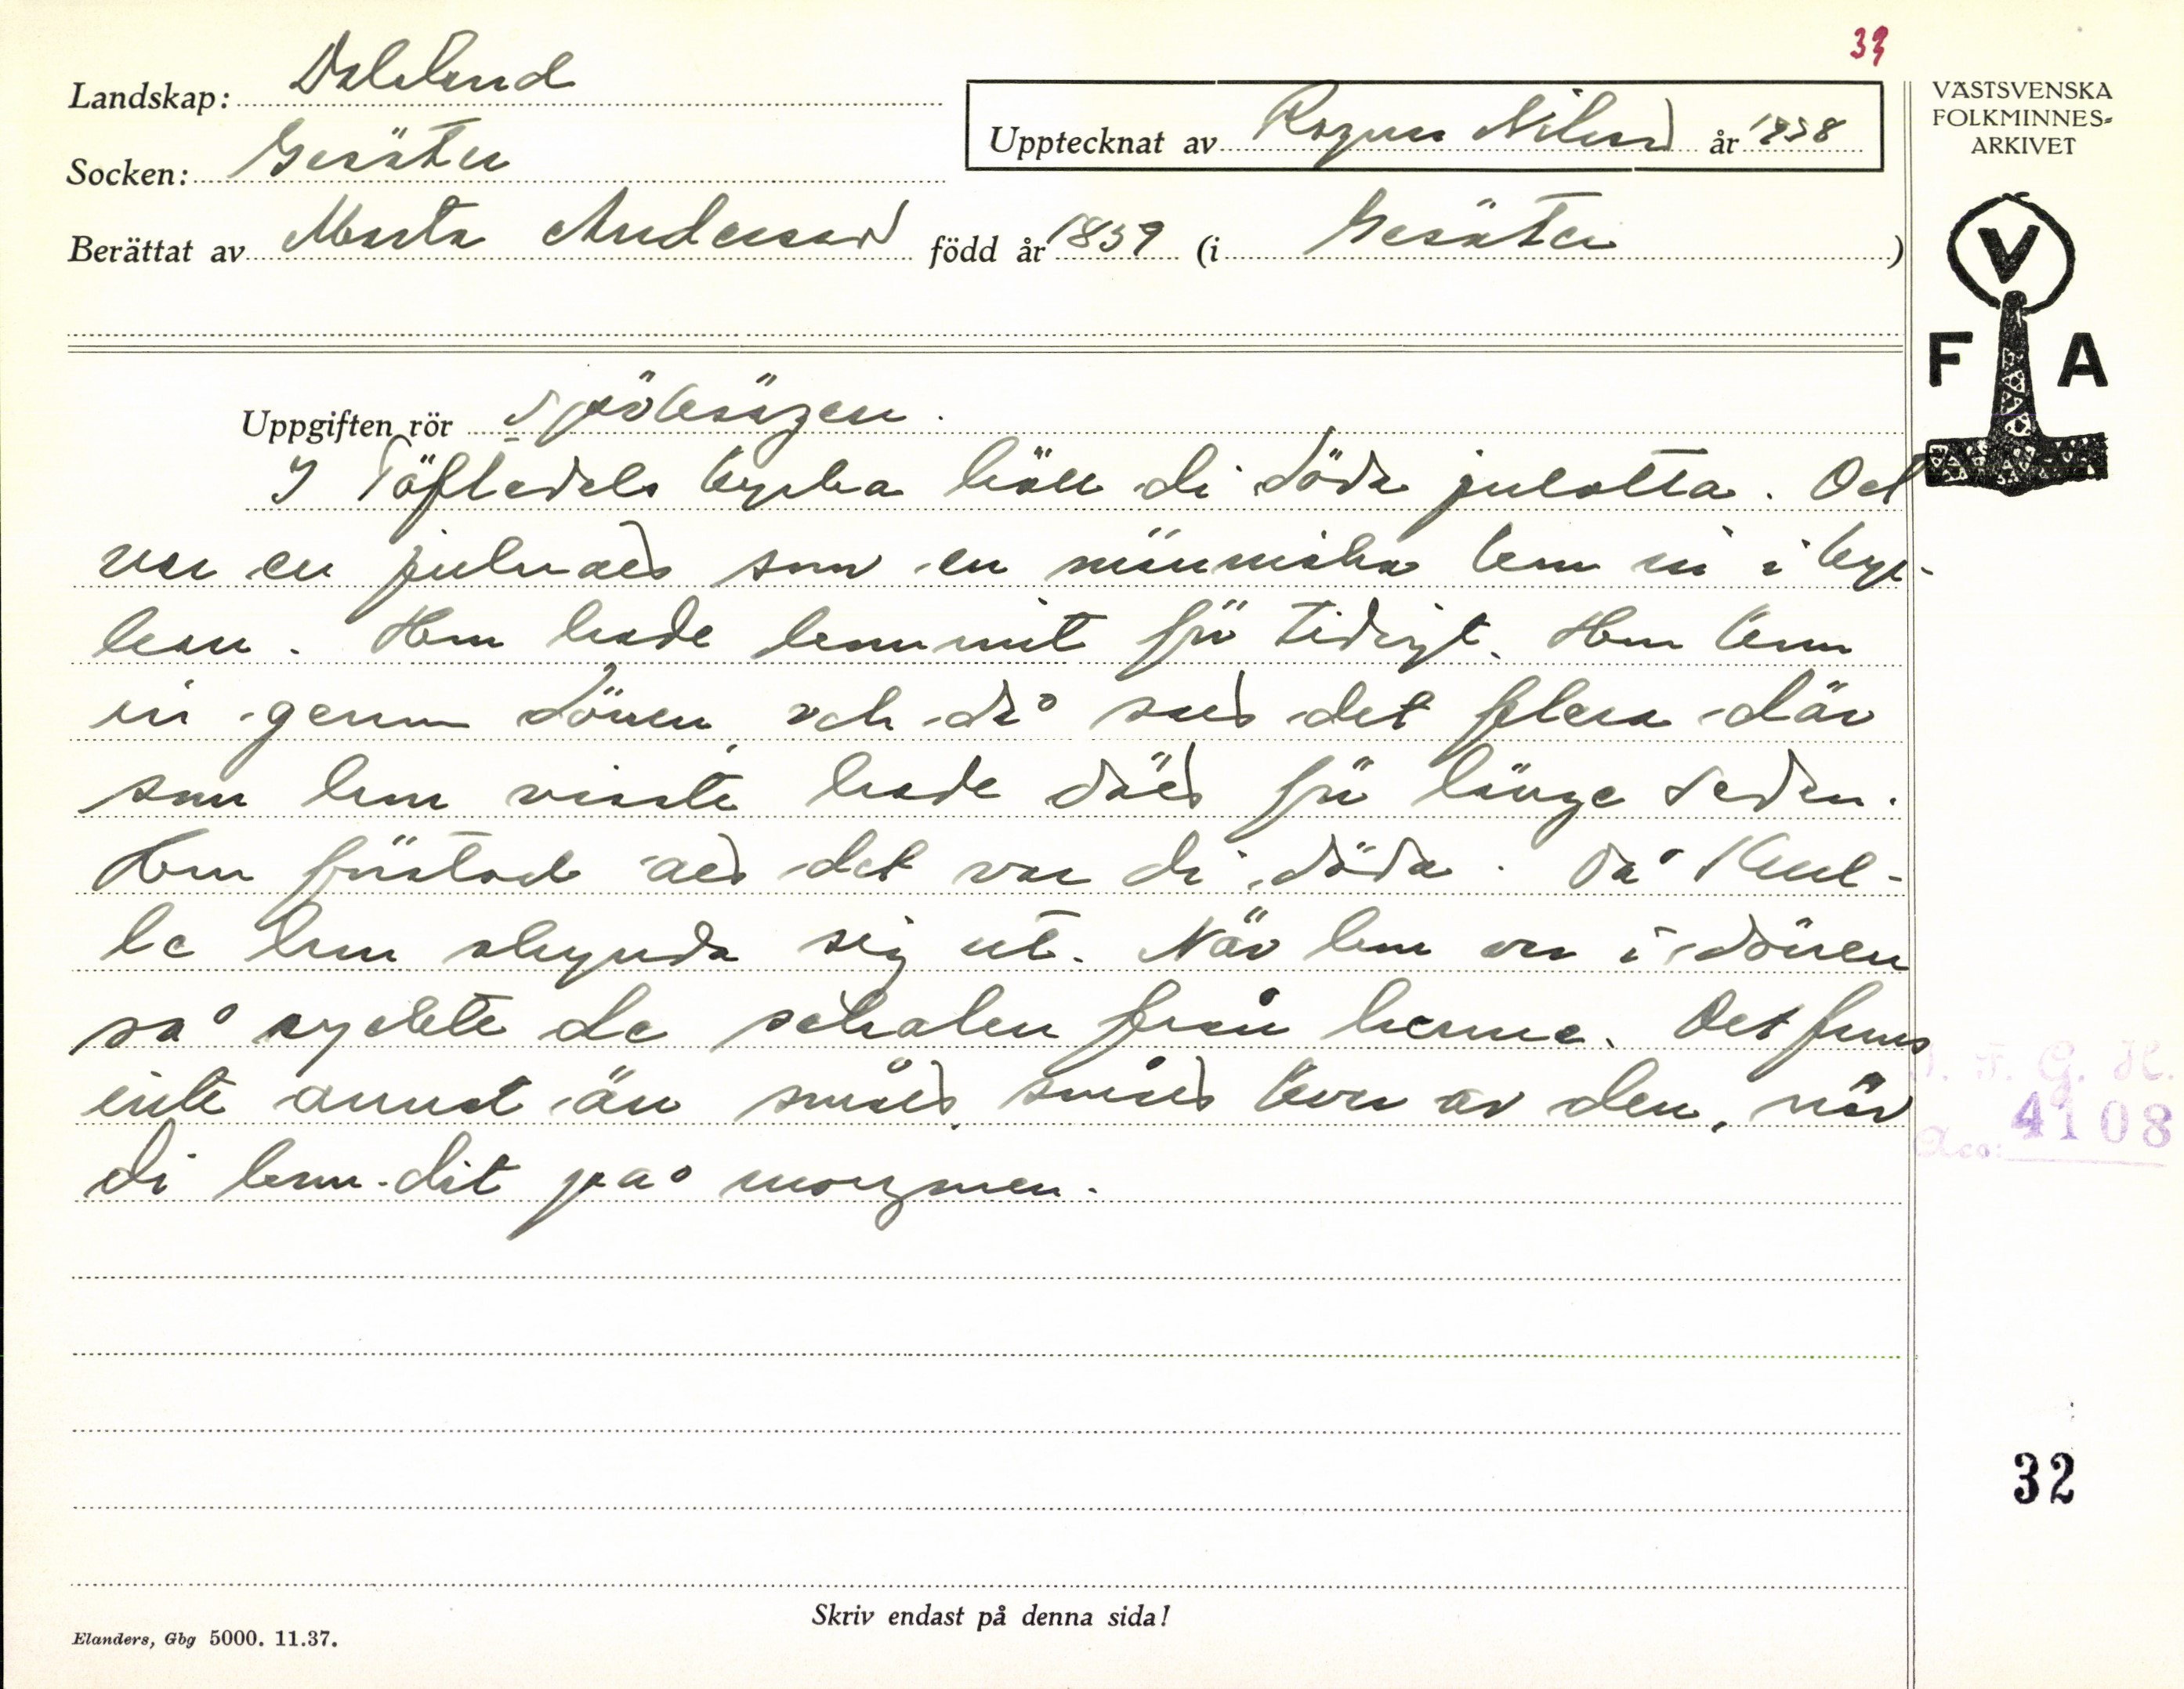 33
Landskap: Dalsland
Upptecknat av Ragnar Nilsson år 1938
VÄSTSVENSKA
FOLKMINNES-
ARKIVET
Socken: Gesäter
Berättat av Marta Andersson född år 1839 (i Gesäter)
V
F A
Uppgiften rör Spöksägen.
I Töftedals kyrka höll di döda julotta. Det
var en julnatt som en människa kom in i kyr-
kan. Hon hade kommit för tidigt. Hon kom
in genom dörren, och då satt det flera där
som hon visste hade dött för länge sedan.
Hon förstod att det var di döda. Då skul-
le hon skynda sig ut. När hon var i dörren
så ryckte de schalen från henne. Det fanns
inte annat än smått, smått kvar av den, när
di kom dit på morgonen.
I. F. G. H.
Acc: 4108
32
Skriv endast på denna sida!
Elanders, Gbg 5000. 11.37.